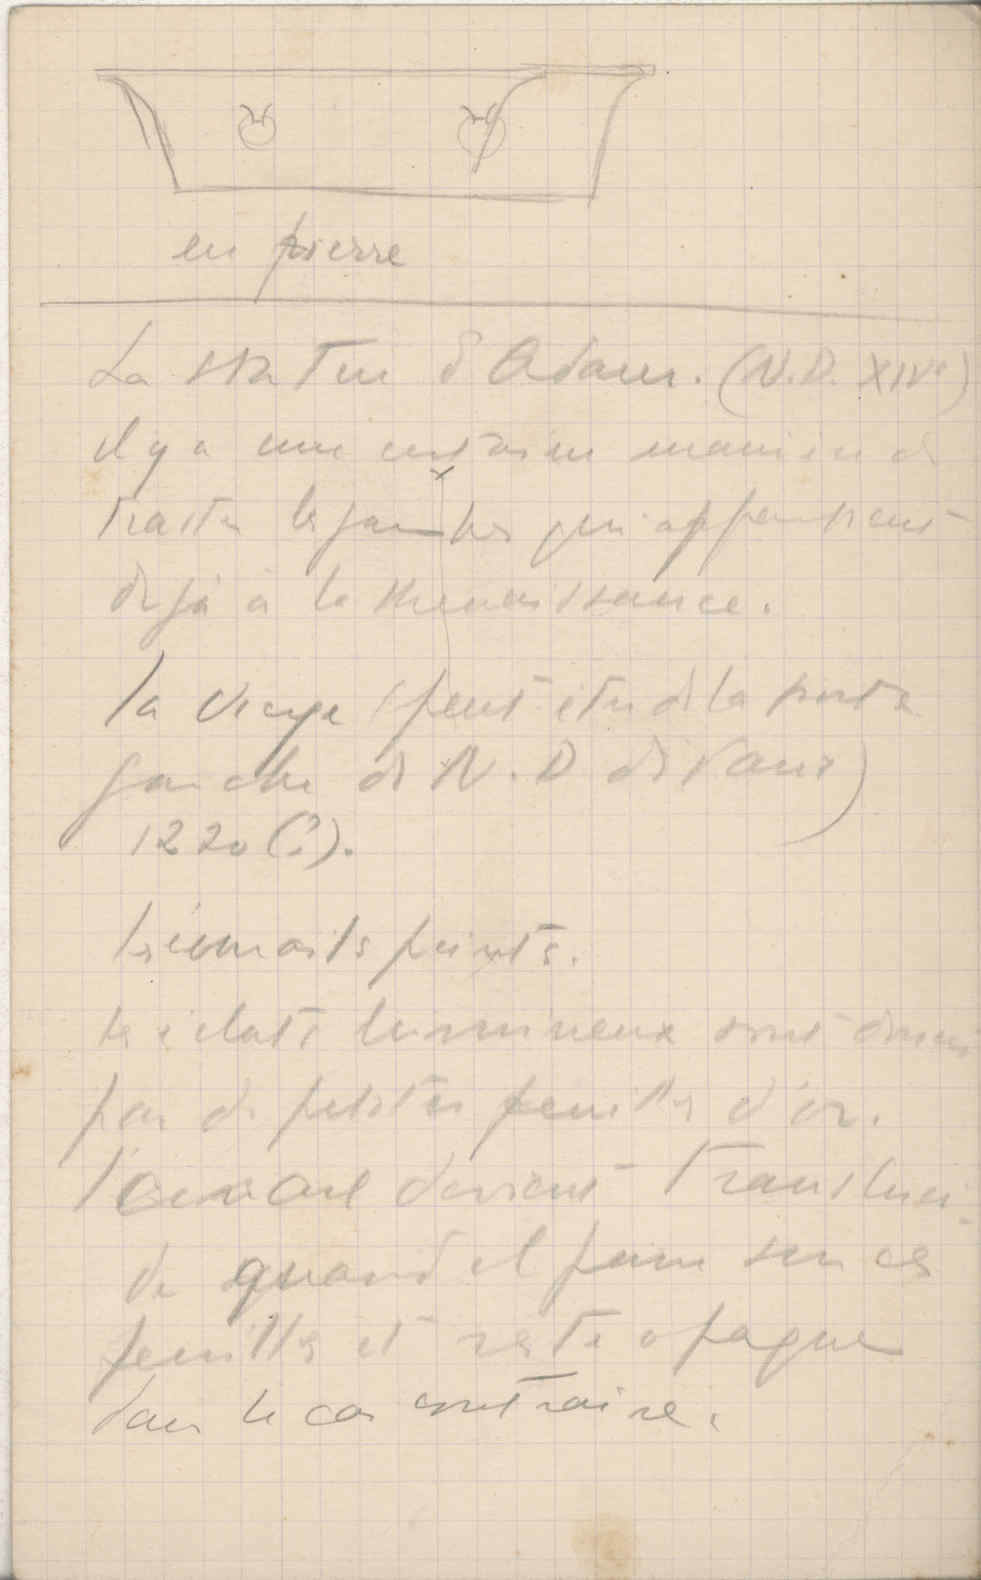 en pierre
La statue d'Adam. (N.D. XIVe)
il y a une certaine manière de
traiter les jambes qui appartient
déjà à la Renaissance.
la Vierge (peut être de la porte
gauche de N.D de Paris)
1220 (?).
les émails peints.
les éclats lumineux sont donnés
par de petites feuilles d'or.
l'émail devient transluci-
de quand il passe sur ces
feuilles et reste opaque
dans le cas contraire.